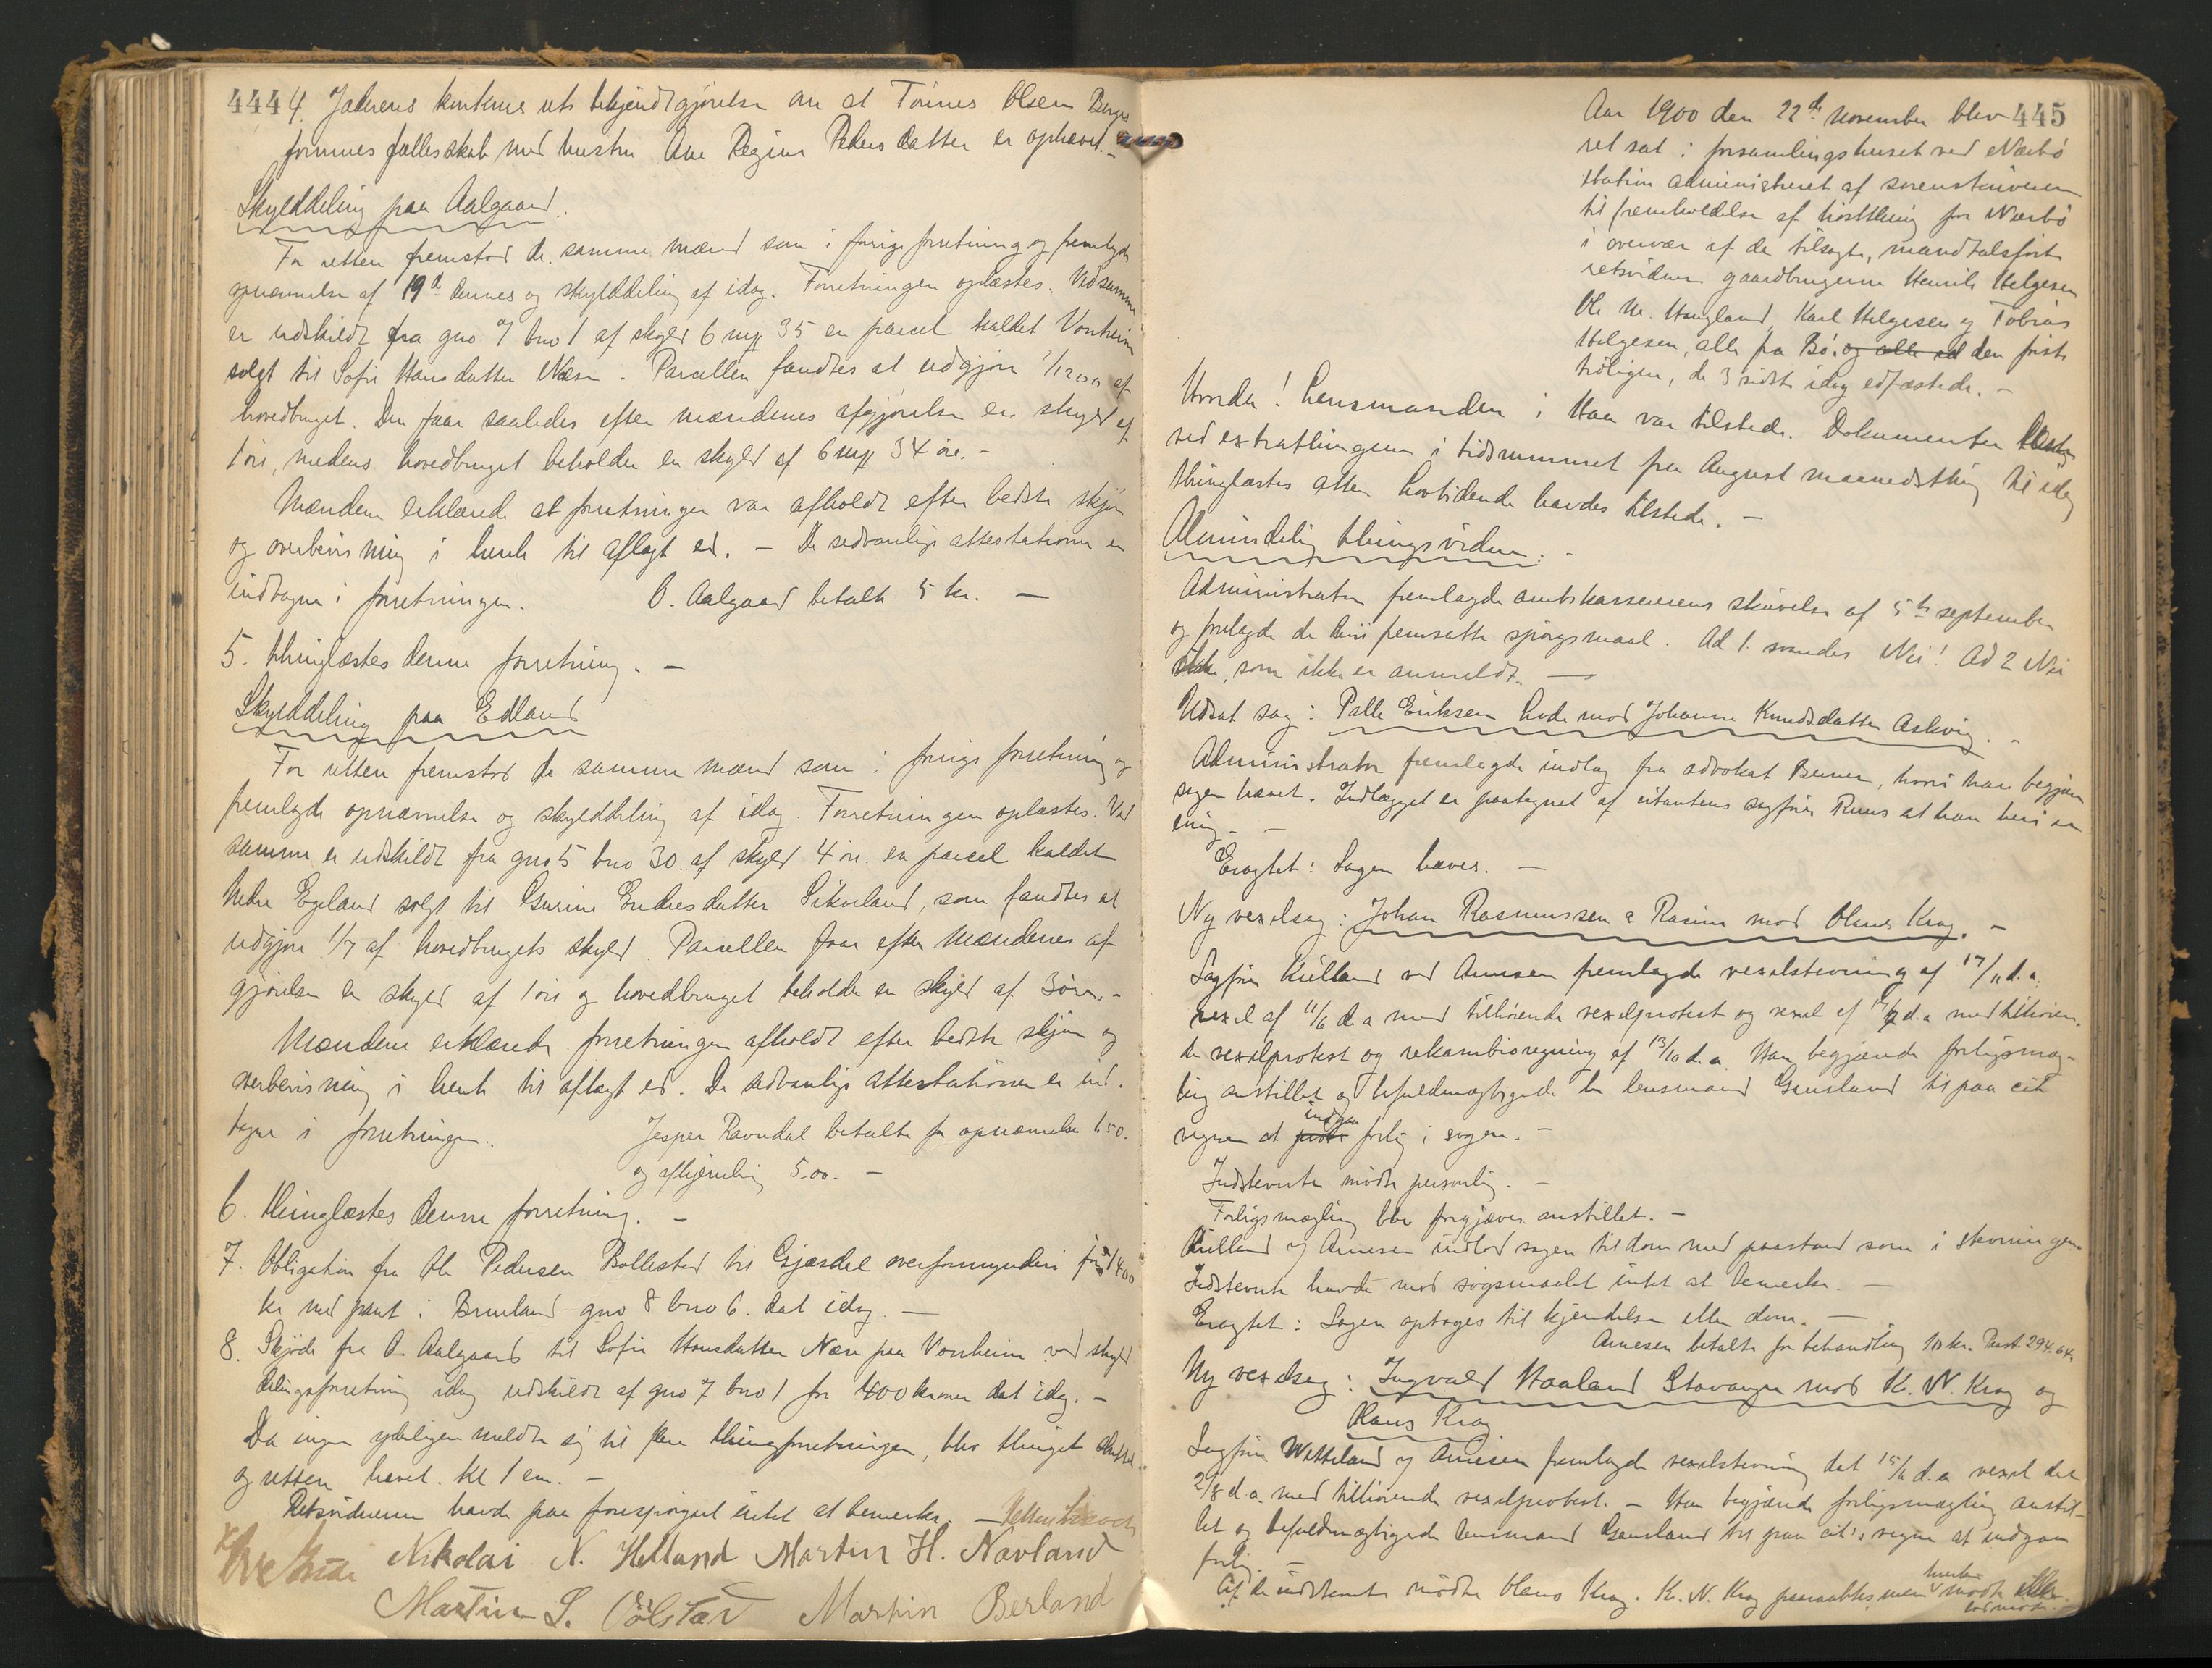 444
4. Jæderens kontorers bekjendtgjørelse om at Tönnes Olsen Berges
formuesfællesskab med hustru Ane Regine Pedersdatter er ophævet. –
Skylddeling paa Aalgaard.
For retten fremstod de samme mænd som i forrige forretning og fremlagde
opnævnelse af 19de dennes og skylddeling af idag. Forretningen oplæstes. Ved samme
er udskildt fra gno 7 bno 1 af skyld 6 mk 35 en parcel kaldet Vonheim
solgt til Sofie Hansdatter Næse. Parcellen fandtes at udgjøre 1/1200 af
hovedbruget. Den faar saaledes efter mændenes afgjørelse en skyld af
1 øre, medens hovedbruget beholder en skyld af 6 mk 34 øre. –
Mændene erklærede at forretningen var afholdt efter bedste skjøn
og overbevisning i henh. til aflagt ed. – De sedvanlige attestationer er
indtagne i forretningen. O. Aalgaard betalte 5 kr. –
5. Thinglæstes denne forretning. –
Skylddeling paa Edland
For retten fremstod de samme mænd som i forrige forretning og
fremlagde opnævnelse og skylddeling af idag. Forretningen oplæstes. Ved
samme er udskildt fra gno 5 bno 30 af skyld 4 øre en parcel kaldet
Nedre Egeland solgt til Gurine Endresdatter Sikveland, som fandtes at
udgjøre 1/7 af hovedbrugets skyld. Parcellen faar efter mændenes af-
gjørelse en skyld af 1 øre og hovedbruget beholder en skyld af 3 øre. –
Mændene erklærede forretningen afholdt efter bedste skjøn og
overbevisning i henh. til aflagt ed. De sedvanlige attestationer er ind-
tagne i forretningen. Jesper Ravndal betalte for opnævnelse 1.50.
og afhjemling 5.00. –
6. Thinglæstes denne forretning. –
7. Obligation fra Ole Pedersen Bollestad til Gjæsdal overformynderi for 1400
kr med pant i Bruland gno 8 bno 6. dat idag. –
8. Skjøde fra O. Aalgaard til Sofie Hansdatter Næse paa Vonheim ved skyld
delingsforretning idag udskildt af gno 7 bno 1 for 400 kroner dat idag. –
Da ingen yderligere meldte sig til flere thingforretninger, blev thinget sluttet
og retten hævet. Kl 1 em. –
Retsvidnerne havde paa forespørgsel intet at bemerke. – Retten hævet
Nikolai N. Helland Martin H. Navland
Martin S. Ölstad Martin Berland
445
Aar 1900 den 22de November blev
ret sat i forsamlingshuset ved Nærbö
station administreret af sorenskriveren
til fremholdelse af høstthing for Nærbö
i overvær af de tilsagte, mandtalsførte
retsvidner gaardbrugerne Henrik Helgesen
Ole M. Haugland, Karl Helgesen og Tobias
Helgesen, alle fra Bö, og alle ed den første
tidligere, de 3 sidste idag edfæstede. –
Hvorda! Lensmanden i Haa var tilstede. Dokumenter
ved extrathingene i tidsrummet fra August maanedsthing til idag
thinglæstes atter. Lovtidende havdes tilstede. –
Almindelig thingsvidne. –
Administrator fremlagde amtskassererens skrivelse af 5te september
og forelagde de deri fremsatte spørgsmaal. Ad 1. svaredes Nei! Ad 2 Nei
ikke, som ikke er anmeldt. –
Udsat sag: Palle Eriksen Lode mod Johanne Knudsdatter Askvig. –
Administrator fremlagde indlæg fra advokat Berner, hvori han begjærer
sagen hævet. Indlægget er paategnet af citantens sagfører Ruus at han heri er
enig. –
Eragtet: Sagen hæves. –
Ny vexelsag: Johan Rasmussen & Rasine mod Olaus Krag. –
Sagfører Kielland ved Arnesen fremlagde vexelstevning af 17/11 d.a.
vexel af 11/6 d.a med tilhørende vexelprotest og vexel af 17/7 d.a med tilhøren-
de vexelprotest og rekambioregning af 13/10 d.a. Han begjærede forligsmæg-
ling anstillet og befuldmægtigede hr lensmand Grøsland til paa cit
vegne at indgaa forlig i sagen. –
Indstevnte mødte personlig. –
Forligsmægling blev forgjæves anstillet. –
Kielland v/ Arnesen indlod sagen til dom med paastand som i stevningen.
Indstevnte havde mod søgsmaalet intet at bemerke. –
Eragtet: Sagen optages til kjendelse eller dom. –
Arnesen betalte for behandling 10 kr. Prot. 294.64.
Ny vexelsag: Ingvald Haaland Stavanger mod K. N. Krag og
Olaus Krag
Sagfører Wetteland v/ Arnesen fremlagde vexelstevning dat 15/11 d.a. vexel dat
2/8 d.a. med tilhørende vexelprotest. – Han begjærede forligsmægling anstil-
let og befuldmægtigede lensmand Grøsland til paa cit's vegne at indgaa
forlig –
Af de indstevnte mødte Olaus Krag. K. N. Krag paaraabtes, men mødte ikke